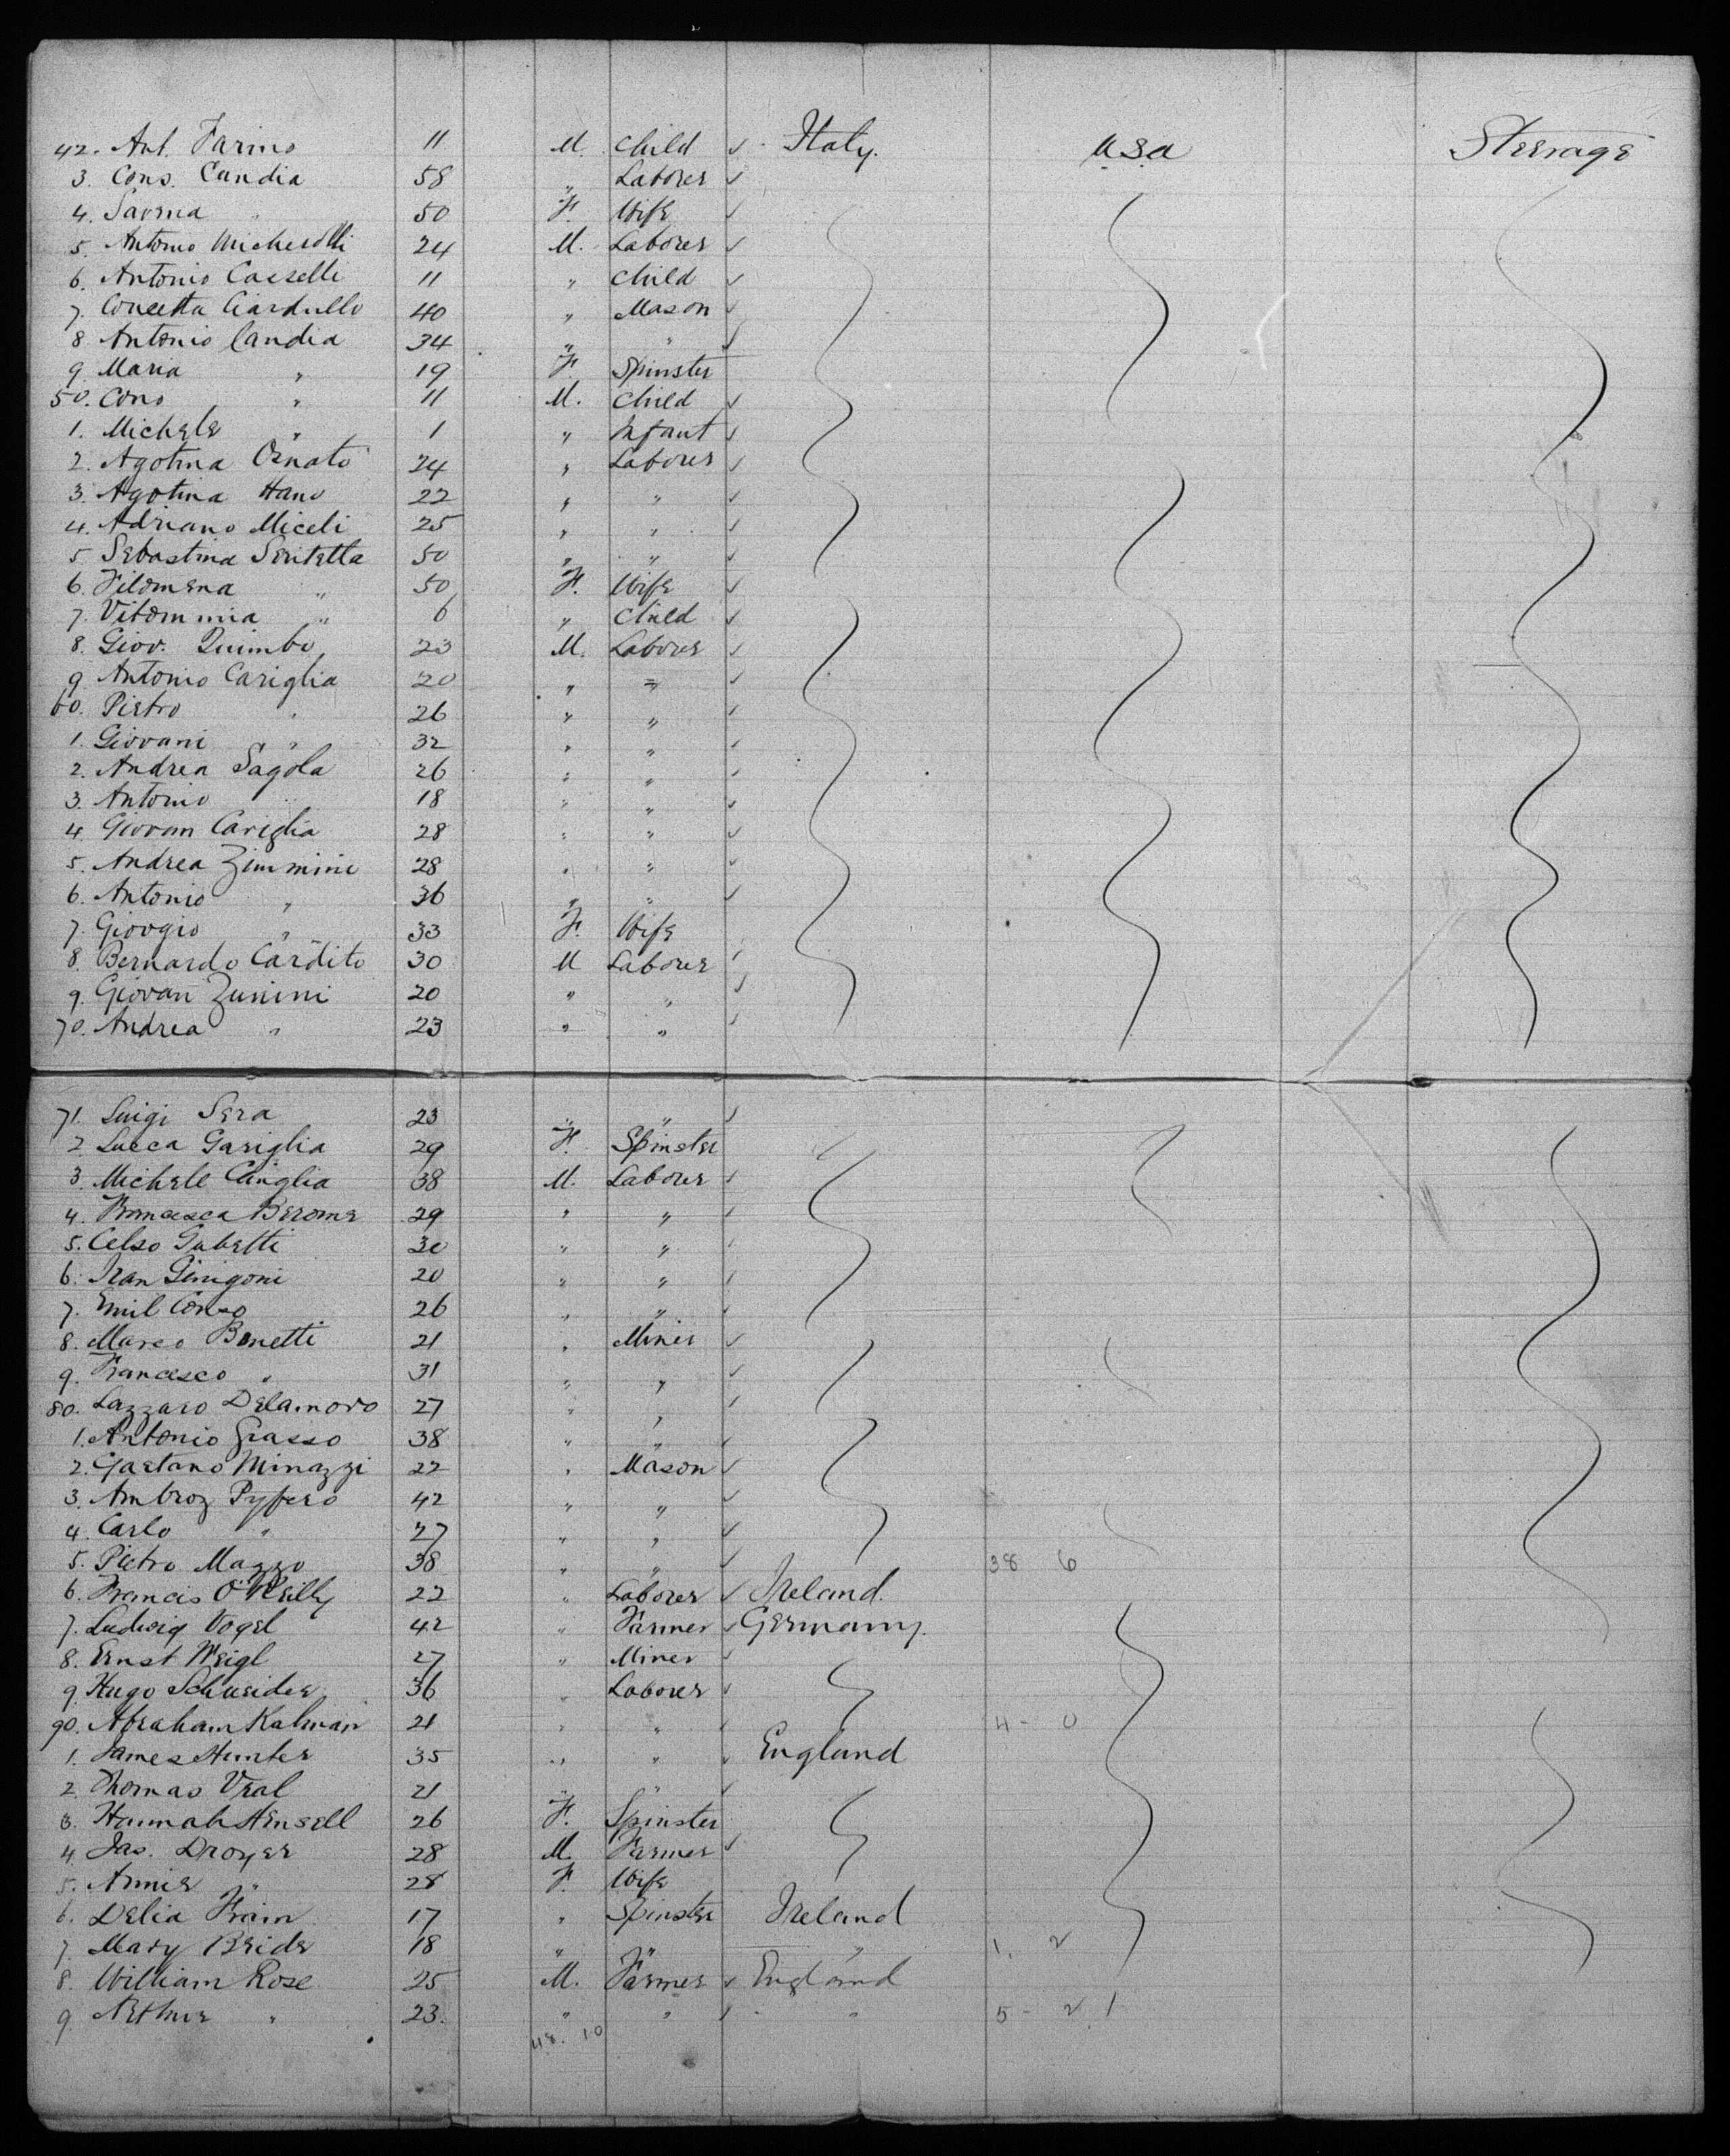 42. Ant. Farino 11 M. Child ✓ Italy. U.S.a Steerage
3. Cons. Candia 58 " Laborer ✓
4. Saveria " 50 F. Wife ✓
5. Antonio 24 M. Laborer ✓
6. Antonio Casselli 11 " Child ✓
7. Concetta Ciardullo 40 " Mason ✓
8 Antonio Candia 34 " " ✓
9. Maria " 19 F. Spinster
50. Cono " 11 M. Child ✓
1. Michele " 1 " Infant ✓
2. Agotina Ornato 24 " Laborer ✓
3. Agotina Hano 22 " " ✓
4. Adriano Miceli 25 " " ✓
5 Sebastina 50 " " ✓
6. Filomena " 50 F. Wife ✓
7. Vitommia " 6 " Child ✓
8. Giov. Quimbo 23 M. Laborer ✓
9 Antonio Cariglia 20 " " ✓
60. Pietro " 26 " " ✓
1. Giovani " 32 " " ✓
2. Andrea Sagola 26 " " ✓
3. Antonio " 18 " " ✓
4 Giovan Cariglia 28 " " ✓
5. Andrea Zimmini 28 " " ✓
6. Antonio " 36 " " ✓
7. Giorgio " 33 F. Wife
8. Bernardo Cardito 30 M Laborer ✓
9. Giovan Zunini 20 " " ✓
70. Andrea " 23 " " ✓
71. Luigi Sera 23 " " ✓
2 Lucca Gariglia 29 F. Spinster
3. Michele Cariglia 38 M. Laborer ✓
4. Francesca Berome 29 " " ✓
5. Celso Gubetti 30 " " ✓
6. 20 " " ✓
7. Emil Conso 26 " " ✓
8. Marco Bonetti 21 " Miner ✓
9. Francesco " 31 " " ✓
80. Lazzaro Delamoro 27 " " ✓
1. Antonio Grasso 38 " " ✓
2. Gaetano Minazzi 22 " Mason ✓
3. Ambroz Pyfero 42 " " ✓
4. Carlo " 27 " " ✓
5. Pietro Mazzo 38 " " ✓ 38 6
6. Francis O'Reilly 22 " Laborer ✓ Ireland.
7. Ludwig Vogel 42 " Farmer ✓ Germany.
8. Ernst Weigl 27 " Miner ✓
9 Hugo Schneider 36 " Laborer ✓
90. Abraham Kalman 21 " " ✓ 4 - 0
1. James Hunter 35 " " ✓ England
2. Thomas Veal 21 " " ✓
3. Hannah Hensell 26 F. Spinster
4. Jas. Droyer 28 M. Farmer ✓
5. Annie " 28 F. Wife
6. Delia 17 " Spinster Ireland
7. Mary Bride 18 " " " 1. 2
8. William Rose 25 M. Farmer ✓ England
9. Arthur " 23. " " ✓ " 5 - 2 1
48. 10